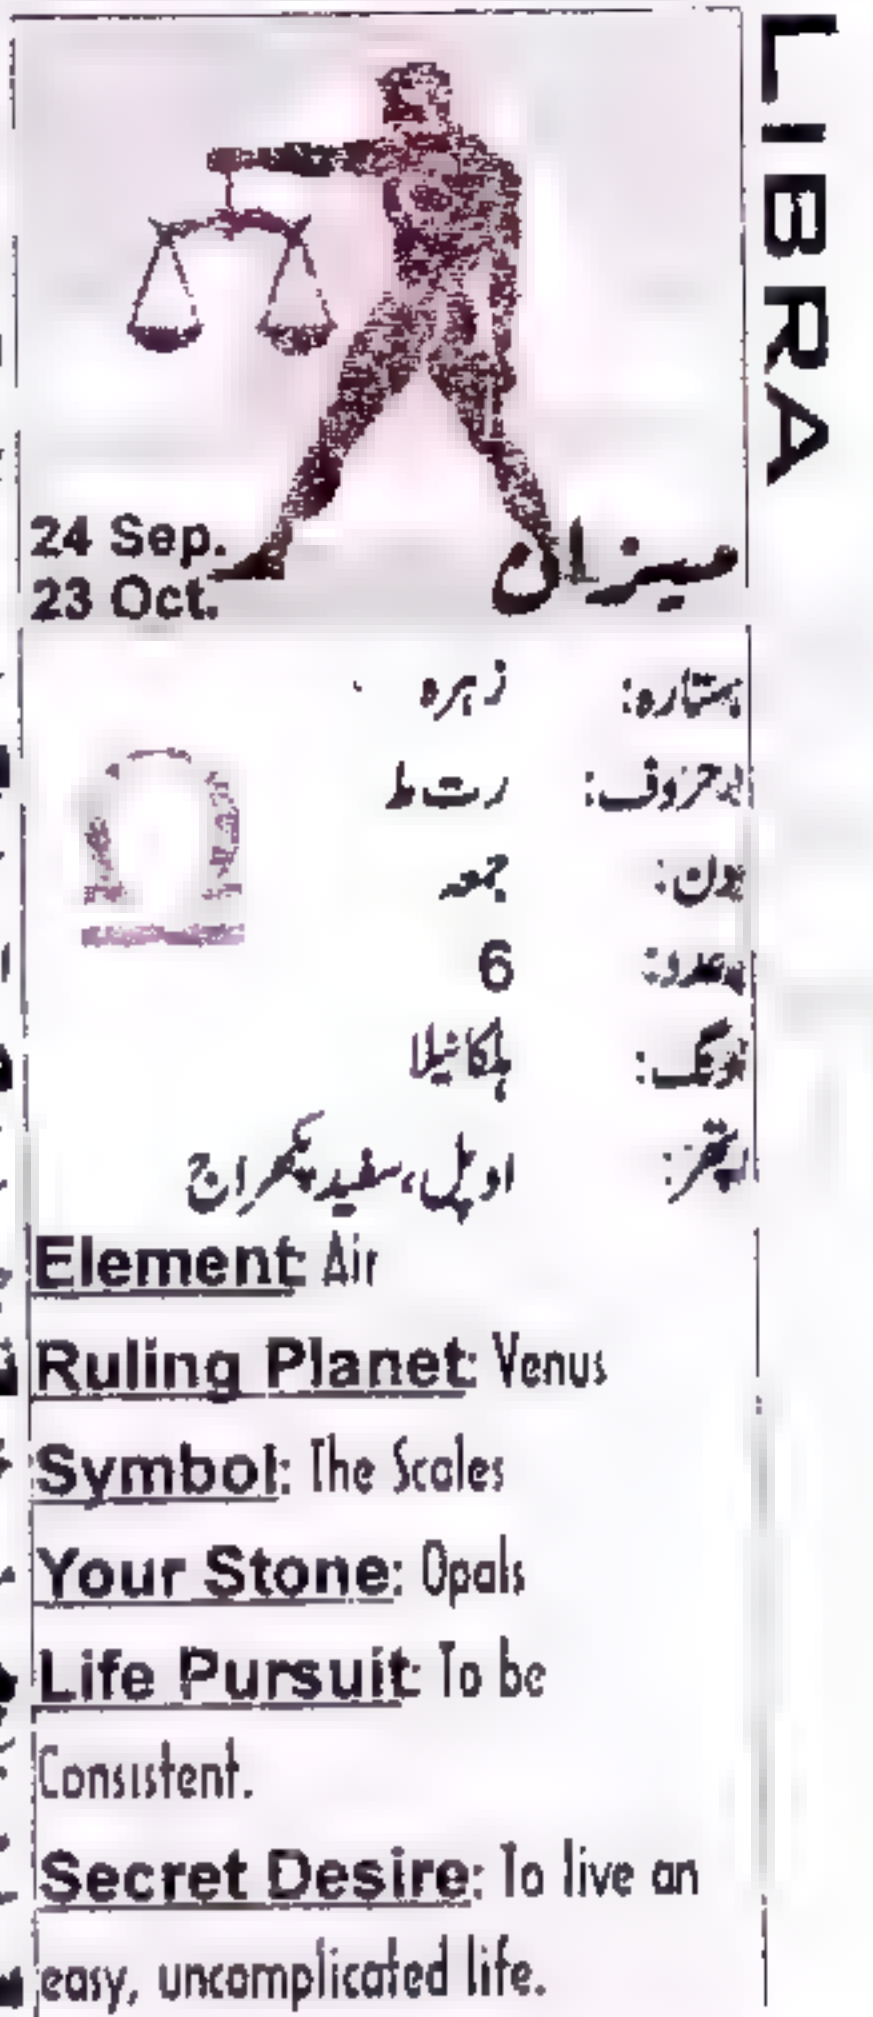 LIBRA
24 Sep.
23 Oct.
میزان
ستارہ: زہرہ
حروف: ر ت ط
دن: جمعہ
عدد: 6
رنگ: ہلکا نیلا
پتھر: اوپل، سفید پکھراج
Element: Air
Ruling Planet: Venus
Symbol: The Scales
Your Stone: Opals
Life Pursuit: To be
Consistent.
Secret Desire: To live an
easy, uncomplicated life.